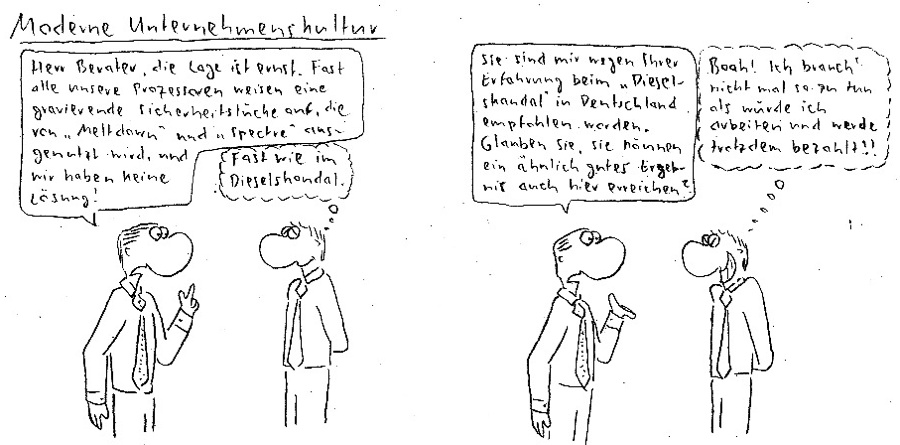 Moderne Unternehmenskultur
Herr Berater, die Lage ist ernst. Fast
alle unsere Prozessoren weisen eine
gravierende Sicherheitslücke auf, die
von „Meltdown" und „Spectre" aus-
genutzt wird, und
wir haben keine
Lösung!
Fast wie im
Dieselskandal.
Sie sind mir wegen Ihrer
Erfahrung beim „Diesel-
skandal" in Deutschland
empfohlen worden.
Glauben Sie, sie können
ein ähnlich gutes Ergeb-
nis auch hier erreichen?
Boah! Ich brauch'
nicht mal so zu tun
als würde ich
arbeiten und werde
trotzdem bezahlt!!